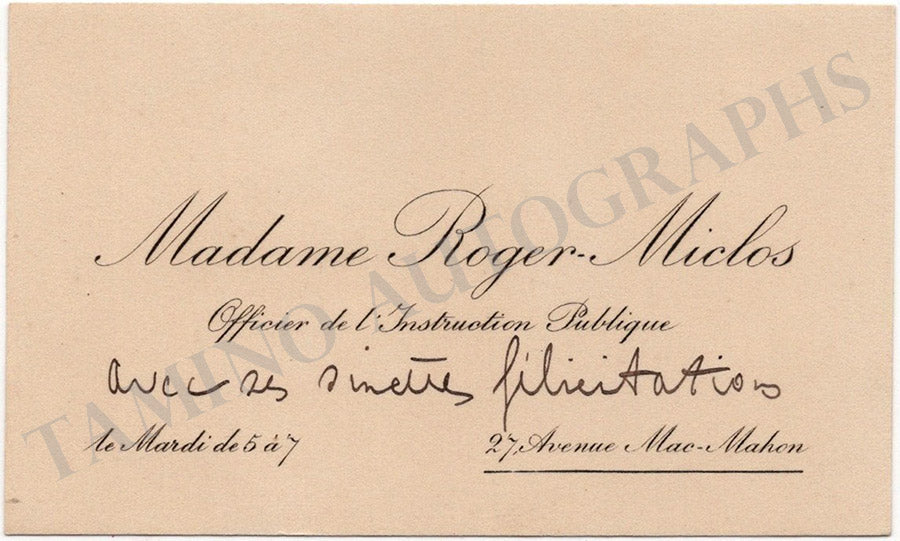 Madame Roger-Miclos
Officier de l'Instruction Publique
avec ses sincères félicitations
le Mardi de 5 à 7
27, Avenue Mac-Mahon
TAMINO AUTOGRAPHS